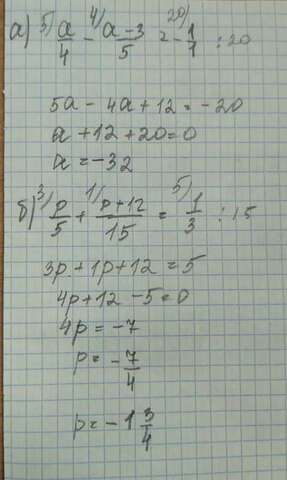 а) ⁵⁾a/4 - ⁴⁾a-3/5 = ²⁰⁾-1/1 :20
5a - 4a + 12 = -20
a + 12 + 20 = 0
a = -32
б) ³⁾p/5 + ¹⁾p+12/15 = ⁵⁾1/3 :15
3p + 1p + 12 = 5
4p + 12 - 5 = 0
4p = -7
p = -7/4
p = -1 3/4